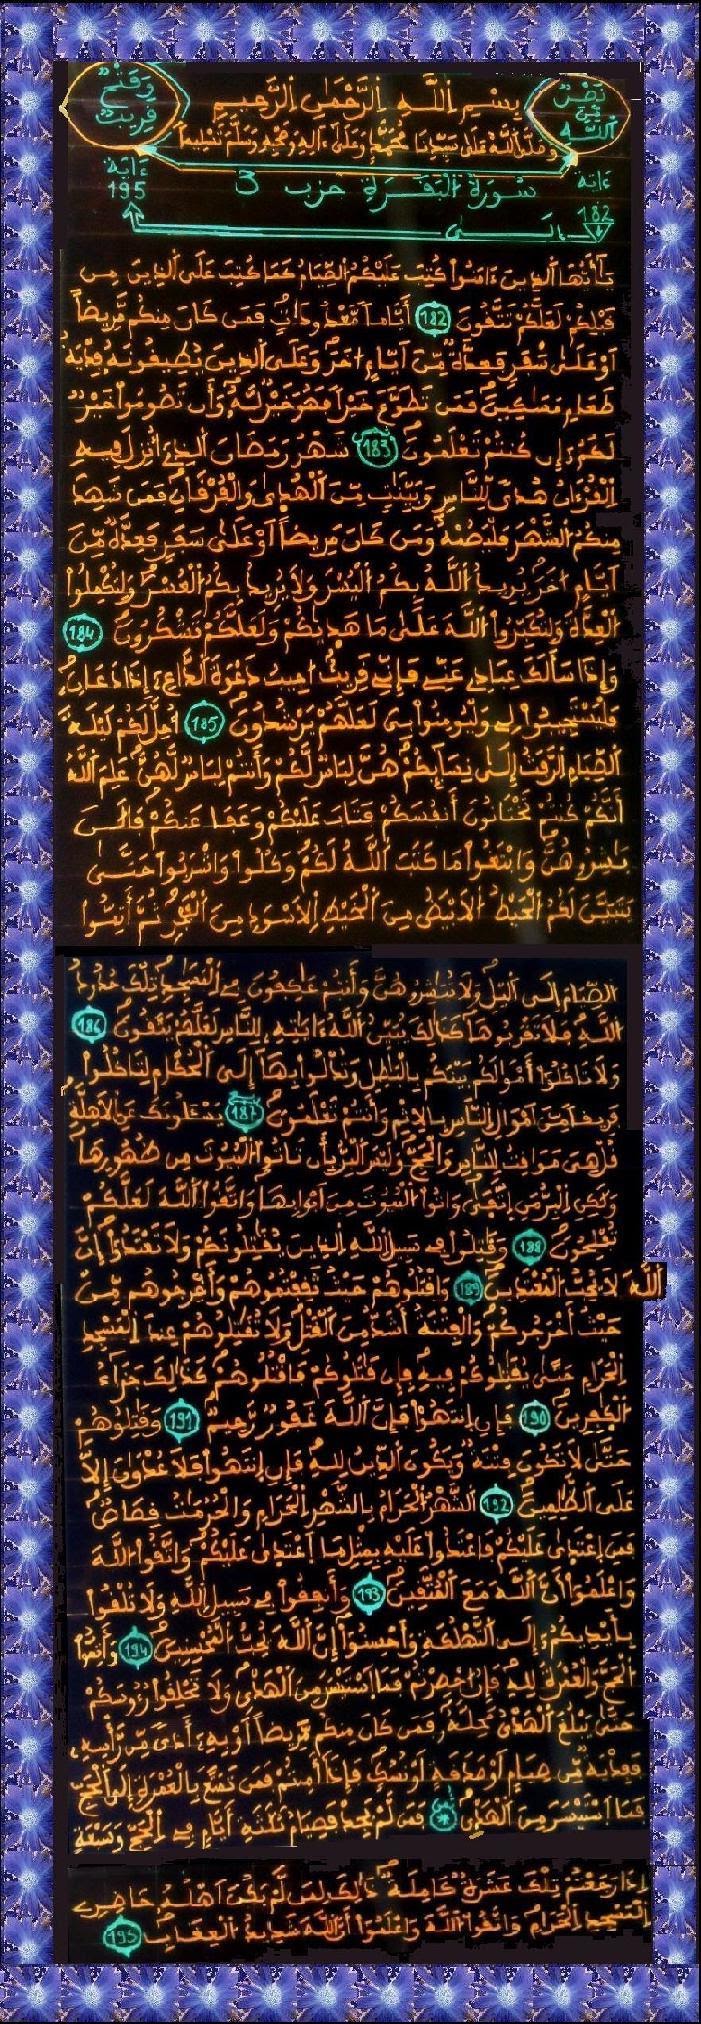 نصر من الله
وفتح قريب
بسم الله الرحمن الرحيم
وصلى الله على سيدنا محمد وعلى ءاله وصحبه وسلم تسليما
ءاية 182
سورة البقرة حزب 3
ءاية 195
إلــى
يَٰأَيُّهَا الذِينَ ءَامَنُواْ كُتِبَ عَلَيْكُمُ الصِّيَامُ كَمَا كُتِبَ عَلَى الذِينَ مِن
قَبْلِكُمْ لَعَلَّكُمْ تَتَّقُونَ 182 أَيَّاماً مَّعْدُودَٰتٍ فَمَن كَانَ مِنكُم مَّرِيضاً
اَوْ عَلَىٰ سَفَرٍ فَعِدَّةٌ مِّنَ اَيَّامٍ اُخَرَ وَعَلَى الذِينَ يُطِيقُونَهُ فِدْيَةُ
طَعَامِ مَسَٰكِينَ فَمَن تَطَوَّعَ خَيْراً فَهُوَ خَيْرٌ لَّهُ وَأَن تَصُومُواْ خَيْرٌ
لَّكُمُ إِن كُنتُمْ تَعْلَمُونَ 183 شَهْرُ رَمَضَانَ الذِي أُنزِلَ فِيهِ
الْقُرْءَانُ هُدىً لِّلنَّاسِ وَبَيِّنَٰتٍ مِّنَ الْهُدَىٰ وَالْفُرْقَانِ فَمَن شَهِدَ
مِنكُمُ الشَّهْرَ فَلْيَصُمْهُ وَمَن كَانَ مَرِيضاً اَوْ عَلَىٰ سَفَرٍ فَعِدَّةٌ مِّنَ
اَيَّامٍ اُخَرَ يُرِيدُ اللَّهُ بِكُمُ الْيُسْرَ وَلَا يُرِيدُ بِكُمُ الْعُسْرَ وَلِتُكْمِلُواْ
الْعِدَّةَ وَلِتُكَبِّرُواْ اللَّهَ عَلَىٰ مَا هَدَىٰكُمْ وَلَعَلَّكُمْ تَشْكُرُونَ 184
وَإِذَا سَأَلَكَ عِبَادِي عَنِّي فَإِنِّي قَرِيبٌ اُجِيبُ دَعْوَةَ الدَّاعِ إِذَا دَعَانِ
فَلْيَسْتَجِيبُواْ لِي وَلْيُومِنُواْ بِي لَعَلَّهُمْ يَرْشُدُونَ 185 أُحِلَّ لَكُمْ لَيْلَةَ
الصِّيَامِ الرَّفَثُ إِلَىٰ نِسَائِكُمْ هُنَّ لِبَاسٌ لَّكُمْ وَأَنتُمْ لِبَاسٌ لَّهُنَّ عَلِمَ اللَّهُ
أَنَّكُمْ كُنتُمْ تَخْتَانُونَ أَنفُسَكُمْ فَتَابَ عَلَيْكُمْ وَعَفَا عَنكُمْ فَالَٰنَ
بَٰشِرُوهُنَّ وَابْتَغُواْ مَا كَتَبَ اللَّهُ لَكُمْ وَكُلُواْ وَاشْرَبُواْ حَتَّىٰ
يَتَبَيَّنَ لَكُمُ الْخَيْطُ الَابْيَضُ مِنَ الْخَيْطِ اِلَاسْوَدِ مِنَ الْفَجْرِ ثُمَّ أَتِمُّواْ
الصِّيَامَ إِلَى اَليْلِ وَلَا تُبَٰشِرُوهُنَّ وَأَنتُمْ عَٰكِفُونَ فِي الْمَسَٰجِدِ تِلْكَ حُدُودُ
اللَّهِ فَلَا تَقْرَبُوهَا كَذَٰلِكَ يُبَيِّنُ اللَّهُ ءَايَٰتِهِ لِلنَّاسِ لَعَلَّهُمْ يَتَّقُونَ 186
وَلَا تَاكُلُواْ أَمْوَٰلَكُم بَيْنَكُم بِالْبَٰطِلِ وَتُدْلُواْ بِهَا إِلَى الْحُكَّامِ لِتَاكُلُواْ
فَرِيقاً مِّنَ اَمْوَٰلِ النَّاسِ بِالِاثْمِ وَأَنتُمْ تَعْلَمُونَ 187 يَسْـَٔلُونَكَ عَنِ الَاهِلَّةِ
قُلْ هِيَ مَوَٰقِيتُ لِلنَّاسِ وَالْحَجِّ وَلَيْسَ الْبِرُّ بِأَن تَاتُواْ الْبُيُوتَ مِن ظُهُورِهَا
وَلَٰكِنِ الْبِرُّ مَنِ اِتَّقَىٰ وَاتُواْ الْبُيُوتَ مِنَ اَبْوَٰبِهَا وَاتَّقُواْ اللَّهَ لَعَلَّكُمْ
تُفْلِحُونَ 188 وَقَٰتِلُواْ فِي سَبِيلِ اللَّهِ الذِينَ يُقَٰتِلُونَكُمْ وَلَا تَعْتَدُواْ إِنَّ
اللَّهَ لَا يُحِبُّ الْمُعْتَدِينَ 189 وَاقْتُلُوهُمْ حَيْثُ ثَقِفْتُمُوهُمْ وَأَخْرِجُوهُم مِّنْ
حَيْثُ أَخْرَجُوكُمْ وَالْفِتْنَةُ أَشَدُّ مِنَ الْقَتْلِ وَلَا تُقَٰتِلُوهُمْ عِندَ الْمَسْجِدِ
الْحَرَامِ حَتَّىٰ يُقَٰتِلُوكُمْ فِيهِ فَإِن قَٰتَلُوكُمْ فَاقْتُلُوهُمْ كَذَٰلِكَ جَزَاءُ
الْكَٰفِرِينَ 190 فَإِنِ اِنتَهَوْاْ فَإِنَّ اللَّهَ غَفُورٌ رَّحِيمٌ 191 وَقَٰتِلُوهُمْ
حَتَّىٰ لَا تَكُونَ فِتْنَةٌ وَيَكُونَ الدِّينُ لِلهِ فَإِنِ اِنتَهَوْاْ فَلَا عُدْوَٰنَ إِلَّا
عَلَى الظَّٰلِمِينَ 192 الشَّهْرُ الْحَرَامُ بِالشَّهْرِ الْحَرَامِ وَالْحُرُمَٰتُ قِصَاصٌ
فَمَنِ اِعْتَدَىٰ عَلَيْكُمْ فَاعْتَدُواْ عَلَيْهِ بِمِثْلِ مَا اَعْتَدَىٰ عَلَيْكُمْ وَاتَّقُواْ اللَّهَ
وَاعْلَمُواْ أَنَّ اللَّهَ مَعَ الْمُتَّقِينَ 193 وَأَنفِقُواْ فِي سَبِيلِ اللَّهِ وَلَا تُلْقُواْ
بِأَيْدِيكُمُ إِلَى التَّهْلُكَةِ وَأَحْسِنُواْ إِنَّ اللَّهَ يُحِبُّ الْمُحْسِنِينَ 194 وَأَتِمُّواْ
الْحَجَّ وَالْعُمْرَةَ لِلهِ فَإِنُ احْصِرْتُمْ فَمَا اَسْتَيْسَرَ مِنَ الْهَدْيِ وَلَا تَحْلِقُواْ رُءُوسَكُمْ
حَتَّىٰ يَبْلُغَ الْهَدْيُ مَحِلَّهُ فَمَن كَانَ مِنكُم مَّرِيضاً اَوْ بِهِ أَذىً مِّن رَّأْسِهِ
فَفِدْيَةٌ مِّن صِيَامٍ اَوْ صَدَقَةٍ اَوْ نُسُكٍ فَإِذَا أَمِنتُمْ فَمَن تَمَتَّعَ بِالْعُمْرَةِ إِلَى الْحَجِّ
فَمَا اَسْتَيْسَرَ مِنَ الْهَدْيِ فَمَن لَّمْ يَجِدْ فَصِيَامُ ثَلَٰثَةِ أَيَّامٍ فِي الْحَجِّ وَسَبْعَةٍ
اِذَا رَجَعْتُمْ تِلْكَ عَشَرَةٌ كَامِلَةٌ ذَٰلِكَ لِمَن لَّمْ يَكُنَ اَهْلُهُ حَاضِرِي
الْمَسْجِدِ الْحَرَامِ وَاتَّقُواْ اللَّهَ وَاعْلَمُواْ أَنَّ اللَّهَ شَدِيدُ الْعِقَابِ 195